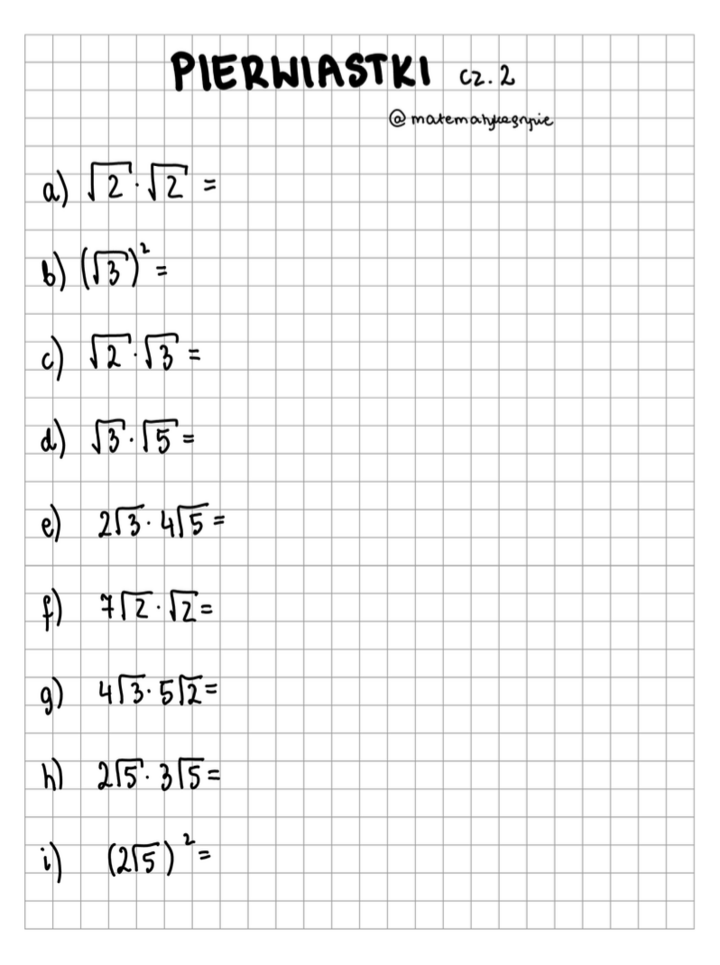 PIERWIASTKI cz. 2
@matematykęgryzie
a) √2 · √2 =
b) (√3)² =
c) √2 · √3 =
d) √3 · √5 =
e) 2√3 · 4√5 =
f) 7√2 · √2 =
g) 4√3 · 5√2 =
h) 2√5 · 3√5 =
i) (2√5)² =